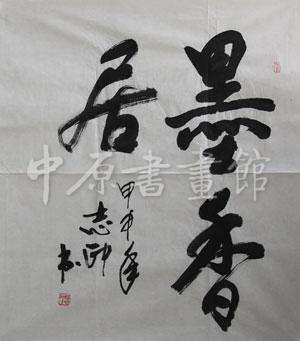 墨香
居
甲午年
志印
书
中原書畫館